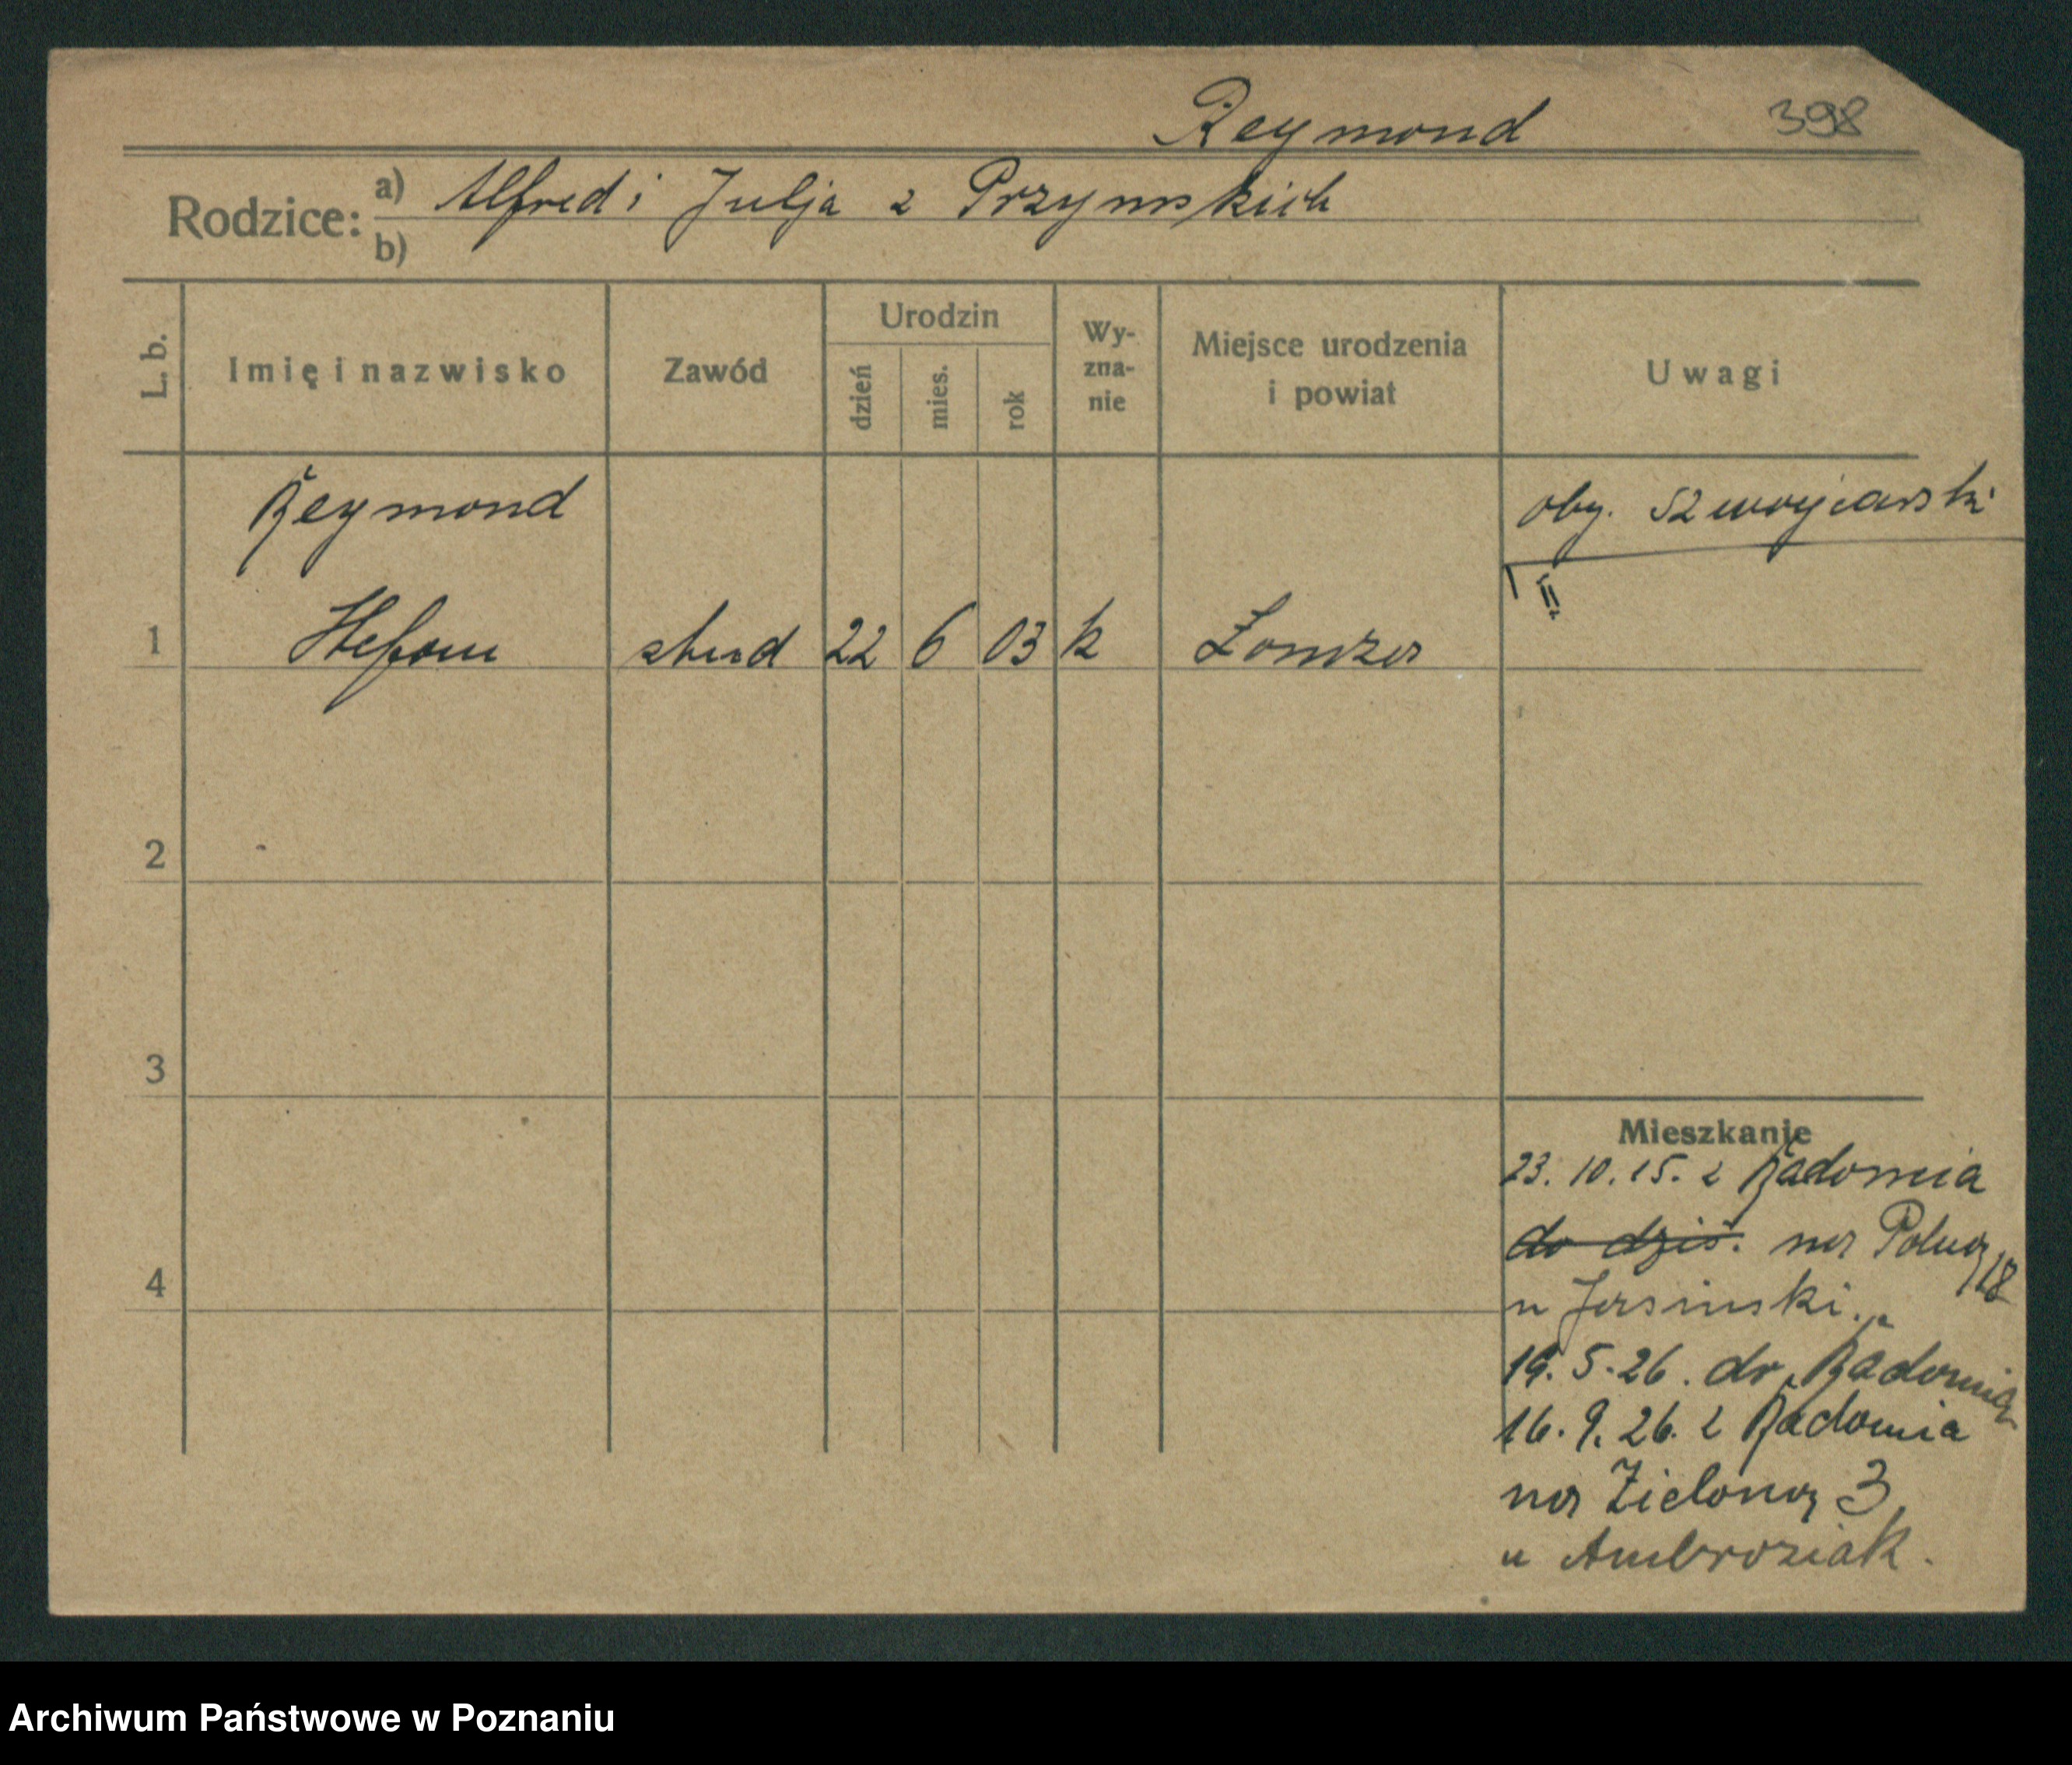 Reymond 398
Rodzice: a) Alfred i Julja z Przymskich
b)
L. b. Imię i nazwisko Zawód Urodzin dzień mies. rok Wy-zna-nie Miejsce urodzenia i powiat Uwagi
Reymond oby. szwajcarski
II
1 Stefan stud 22 6 03 k Łomża
2
3
Mieszkanie
23. 10. 25. z Radomia
do dziś. na Polną 18
4
u Jasinski.
19. 5. 26. do Radomia
16. 9. 26. z Radomia
na Zieloną 3
u Ambroziak.
Archiwum Państwowe w Poznaniu